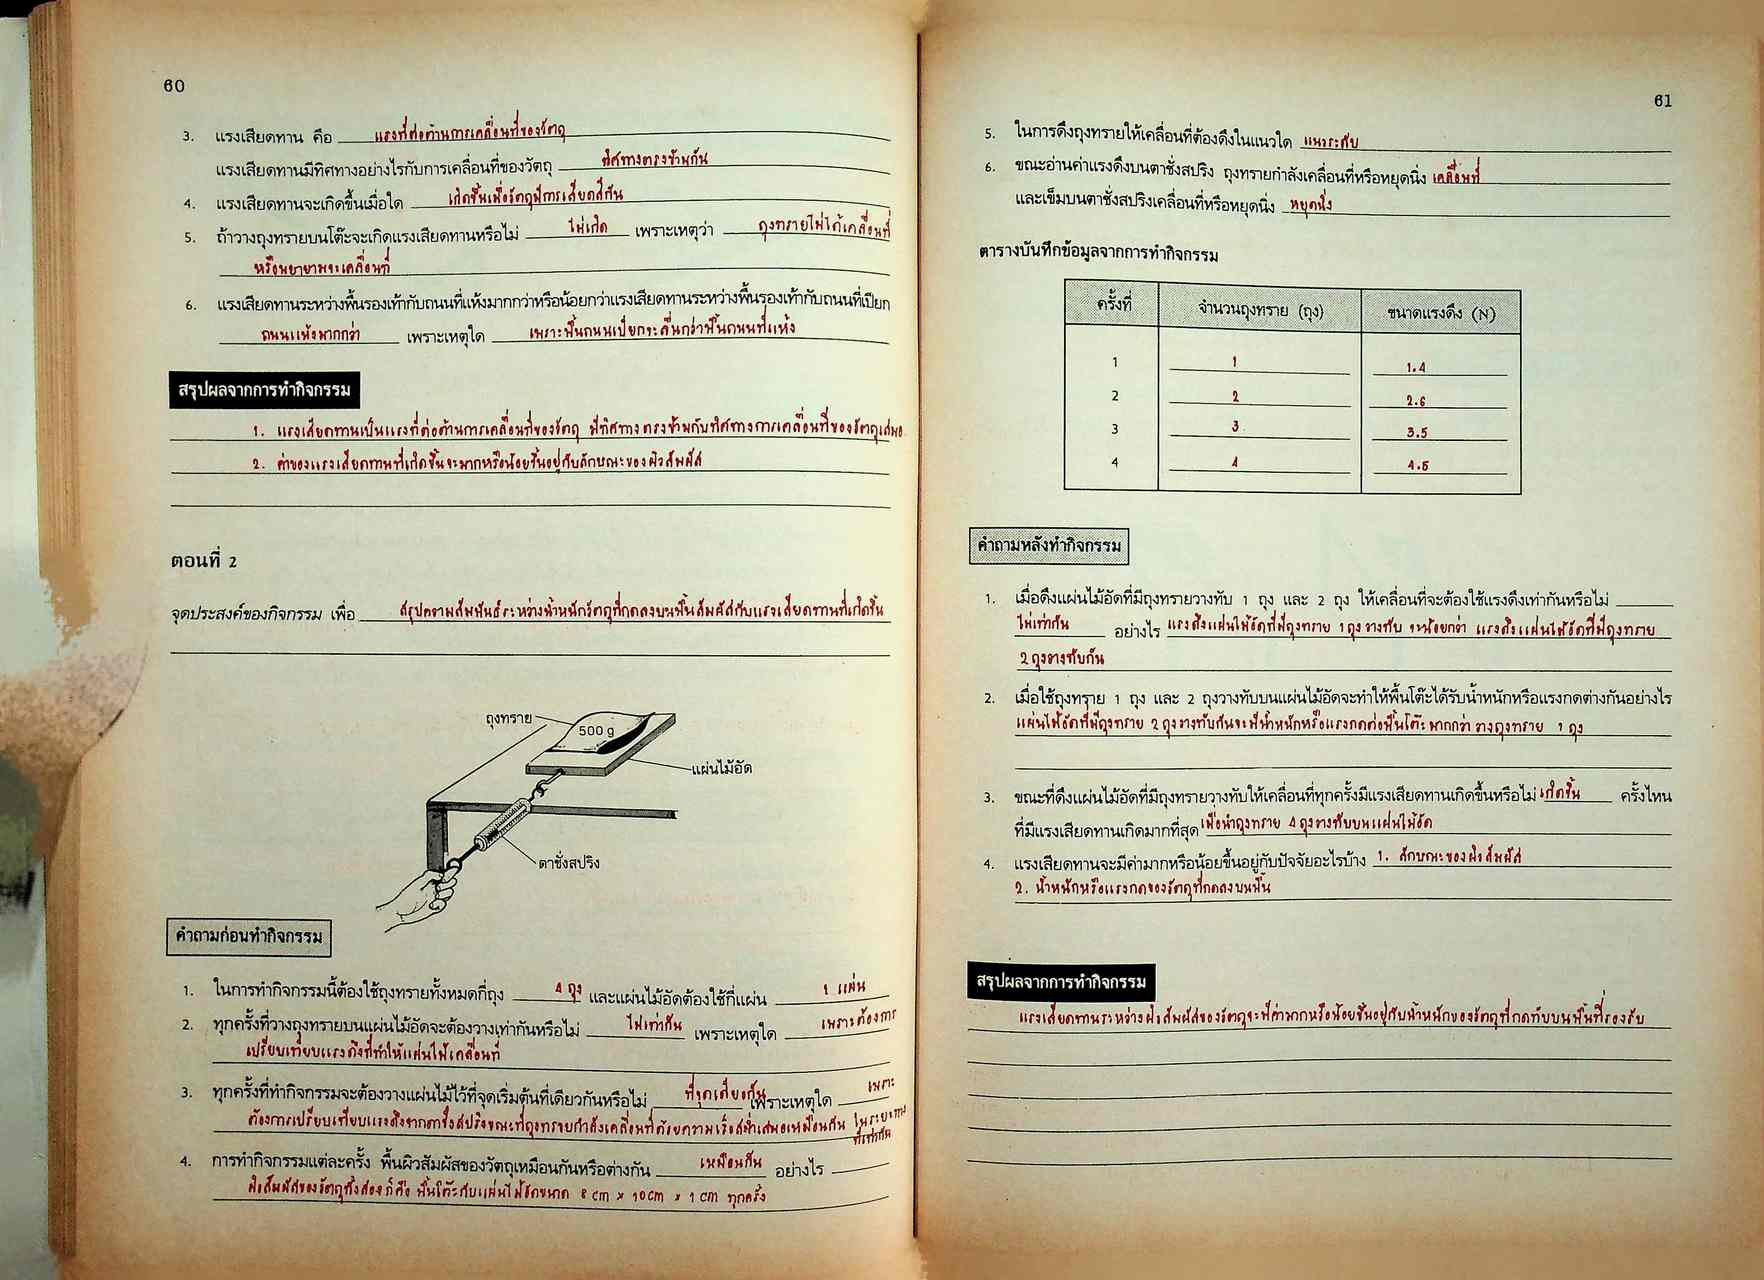 60
3. แรงเสียดทาน คือ แรงที่ต่อต้านการเคลื่อนที่ของวัตถุ
แรงเสียดทานมีทิศทางอย่างไรกับการเคลื่อนที่ของวัตถุ ทิศทางตรงข้ามกัน
4. แรงเสียดทานจะเกิดขึ้นเมื่อใด เกิดขึ้นเมื่อวัตถุมีการเสียดสีกัน
5. ถ้าวางถุงทรายบนโต๊ะจะเกิดแรงเสียดทานหรือไม่ ไม่เกิด เพราะเหตุว่า ถุงทรายไม่ได้เคลื่อนที่
หรือพยายามจะเคลื่อนที่
6. แรงเสียดทานระหว่างพื้นรองเท้ากับถนนที่แห้งมากกว่าหรือน้อยกว่าแรงเสียดทานระหว่างพื้นรองเท้ากับถนนที่เปียก
ถนนแห้งมากกว่า เพราะเหตุใด เพราะพื้นถนนเปียกจะลื่นกว่าพื้นถนนที่แห้ง
สรุปผลจากการทำกิจกรรม
1. แรงเสียดทานเป็นแรงที่ต่อต้านการเคลื่อนที่ของวัตถุ มีทิศทางตรงข้ามกับทิศทางการเคลื่อนที่ของวัตถุเสมอ
2. ค่าของแรงเสียดทานที่เกิดขึ้นจะมากหรือน้อยขึ้นอยู่กับลักษณะของผิวสัมผัส
ตอนที่ 2
จุดประสงค์ของกิจกรรม เพื่อ สรุปความสัมพันธ์ระหว่างน้ำหนักวัตถุที่กดลงบนพื้นสัมผัสกับแรงเสียดทานที่เกิดขึ้น
ถุงทราย
500 g
แผ่นไม้อัด
ตาชั่งสปริง
คำถามก่อนทำกิจกรรม
1. ในการทำกิจกรรมนี้ต้องใช้ถุงทรายทั้งหมดกี่ถุง 4 ถุง และแผ่นไม้อัดต้องใช้กี่แผ่น 1 แผ่น
2. ทุกครั้งที่วางถุงทรายบนแผ่นไม้อัดจะต้องวางเท่ากันหรือไม่ ไม่เท่ากัน เพราะเหตุใด เพราะต้องการ
เปรียบเทียบแรงดึงที่ทำให้แผ่นไม้เคลื่อนที่
3. ทุกครั้งที่ทำกิจกรรมจะต้องวางแผ่นไม้ไว้ที่จุดเริ่มต้นที่เดียวกันหรือไม่ ที่จุดเดียวกัน เพราะเหตุใด เพราะ
ต้องการเปรียบเทียบแรงดึงจากตาชั่งสปริงขณะที่ถุงทรายกำลังเคลื่อนที่ด้วยความเร็วสม่ำเสมอเหมือนกัน ในระยะทาง
ที่เท่ากัน
4. การทำกิจกรรมแต่ละครั้ง พื้นผิวสัมผัสของวัตถุเหมือนกันหรือต่างกัน เหมือนกัน อย่างไร
ผิวสัมผัสของวัตถุทั้งสองก็คือ พื้นโต๊ะกับแผ่นไม้อัดขนาด 8 cm x 10 cm x 1 cm ทุกครั้ง
61
5. ในการดึงถุงทรายให้เคลื่อนที่ต้องดึงในแนวใด แนวระดับ
6. ขณะอ่านค่าแรงดึงบนตาชั่งสปริง ถุงทรายกำลังเคลื่อนที่หรือหยุดนิ่ง เคลื่อนที่
และเข็มบนตาชั่งสปริงเคลื่อนที่หรือหยุดนิ่ง หยุดนิ่ง
ตารางบันทึกข้อมูลจากการทำกิจกรรม
ครั้งที่ จำนวนถุงทราย (ถุง) ขนาดแรงดึง (N)
1 1 1.4
2 2 2.6
3 3 3.5
4 4 4.5
คำถามหลังทำกิจกรรม
1. เมื่อดึงแผ่นไม้อัดที่มีถุงทรายวางทับ 1 ถุง และ 2 ถุง ให้เคลื่อนที่จะต้องใช้แรงดึงเท่ากันหรือไม่
ไม่เท่ากัน อย่างไร แรงดึงแผ่นไม้อัดที่มีถุงทราย 1 ถุงวางทับ จะน้อยกว่า แรงดึงแผ่นไม้อัดที่มีถุงทราย
2 ถุงวางทับกัน
2. เมื่อใช้ถุงทราย 1 ถุง และ 2 ถุงวางทับบนแผ่นไม้อัดจะทำให้พื้นโต๊ะได้รับน้ำหนักหรือแรงกดต่างกันอย่างไร
แผ่นไม้อัดที่มีถุงทราย 2 ถุงวางทับกันจะมีน้ำหนักหรือแรงกดต่อพื้นโต๊ะมากกว่า วางถุงทราย 1 ถุง
3. ขณะที่ดึงแผ่นไม้อัดที่มีถุงทรายวางทับให้เคลื่อนที่ทุกครั้งมีแรงเสียดทานเกิดขึ้นหรือไม่ เกิดขึ้น ครั้งไหน
ที่มีแรงเสียดทานเกิดมากที่สุด เมื่อนำถุงทราย 4 ถุงวางทับบนแผ่นไม้อัด
4. แรงเสียดทานจะมีค่ามากหรือน้อยขึ้นอยู่กับปัจจัยอะไรบ้าง 1. ลักษณะของผิวสัมผัส
2. น้ำหนักหรือแรงกดของวัตถุที่กดลงบนพื้น
สรุปผลจากการทำกิจกรรม
แรงเสียดทานระหว่างผิวสัมผัสของวัตถุจะมีค่ามากหรือน้อยขึ้นอยู่กับน้ำหนักของวัตถุที่กดทับบนพื้นที่รองรับ